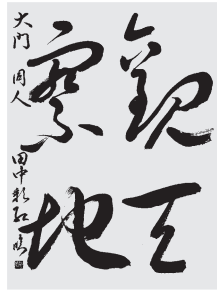 観天
察地
大門 同人 田中